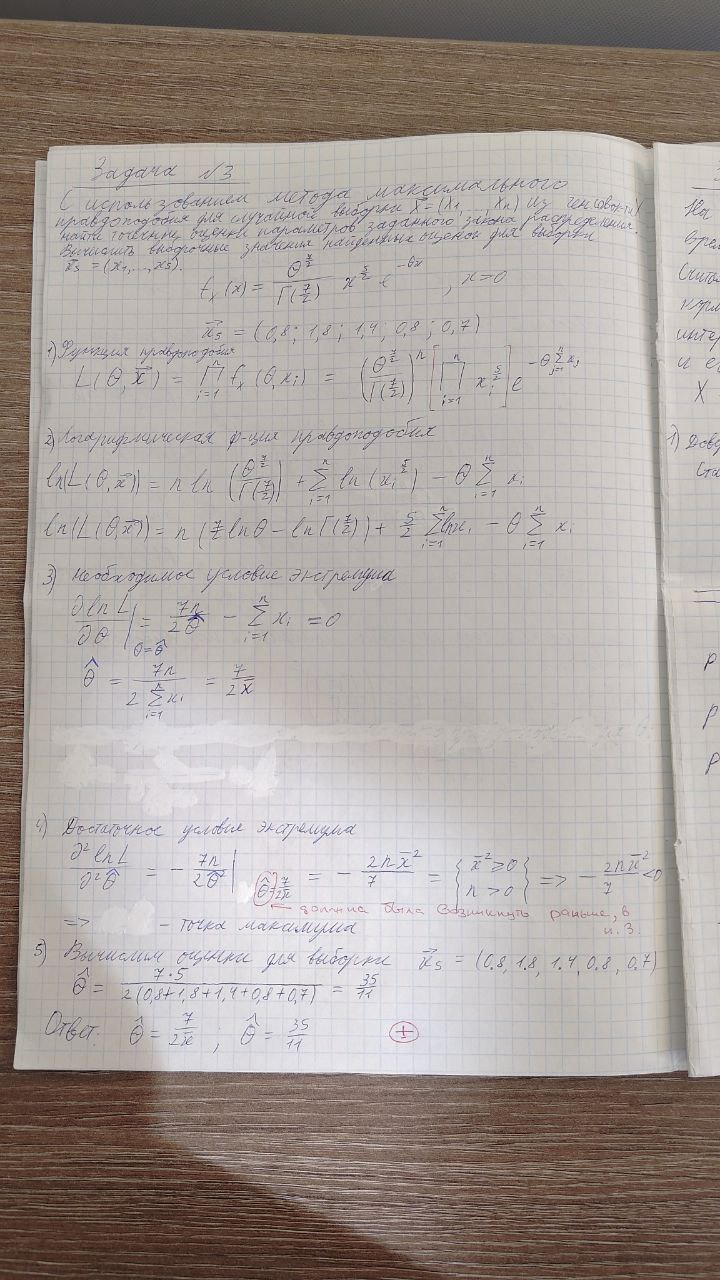 Задача №3
С использованием метода максимального
правдоподобия для случайной выборки X⃗ = (X₁, ..., Xₙ) из ген. совок-ти X
найти точечные оценки параметров заданного закона распределения.
Вычислить выборочные значения найденных оценок для выборки
x⃗₅ = (x₁,...,x₅).
fₓ(x) = θ^(7/2) / Γ(7/2) x^(5/2) e^(-θx), x>0
x⃗₅ = (0,8; 1,8; 1,4; 0,8; 0,7)
1) Функция правдоподобия
L(θ, x⃗) = ∏_{i=1}^{n} fₓ(θ, xᵢ) = (θ^(7/2) / Γ(7/2))ⁿ [∏_{i=1}^{n} xᵢ^(5/2)] e^(-θ∑_{i=1}^{n} xᵢ)
2) Логарифмическая ф-ция правдоподобия
ln(L(θ,x⃗)) = n ln (θ^(7/2) / Γ(7/2)) + ∑_{i=1}^{n} ln(xᵢ^(5/2)) - θ ∑_{i=1}^{n} xᵢ
ln(L(θ,x⃗)) = n (7/2 lnθ - lnΓ(7/2)) + 5/2 ∑_{i=1}^{n} lnxᵢ - θ ∑_{i=1}^{n} xᵢ
3) Необходимое условие экстремума
∂lnL/∂θ |_{θ=θ̂} = 7n/2θ̂ - ∑_{i=1}^{n} xᵢ = 0
θ̂ = 7n / 2∑_{i=1}^{n} xᵢ = 7/2x̄
4) Достаточное условие экстремума
∂²lnL/∂²θ̂ = - 7n/2θ̂² |_{θ̂=7/2x̄} = - 2nx̄²/7 = { x̄²≥0 n>0 } => - 2nx̄²/7 <0
должна была возникнуть раньше, в
п. 3
=> - точка максимума
5) Вычислим оценки для выборки x⃗₅ = (0.8, 1.8, 1.4, 0.8, 0.7)
θ̂ = 7·5 / 2(0,8+1,8+1,4+0,8+0,7) = 35/11
Ответ: θ̂ = 7/2x̄ ; θ̂ = 35/11
+
На
врем
Счита
норм
инте
и е
X
1) Дове
Ста
P
P
P